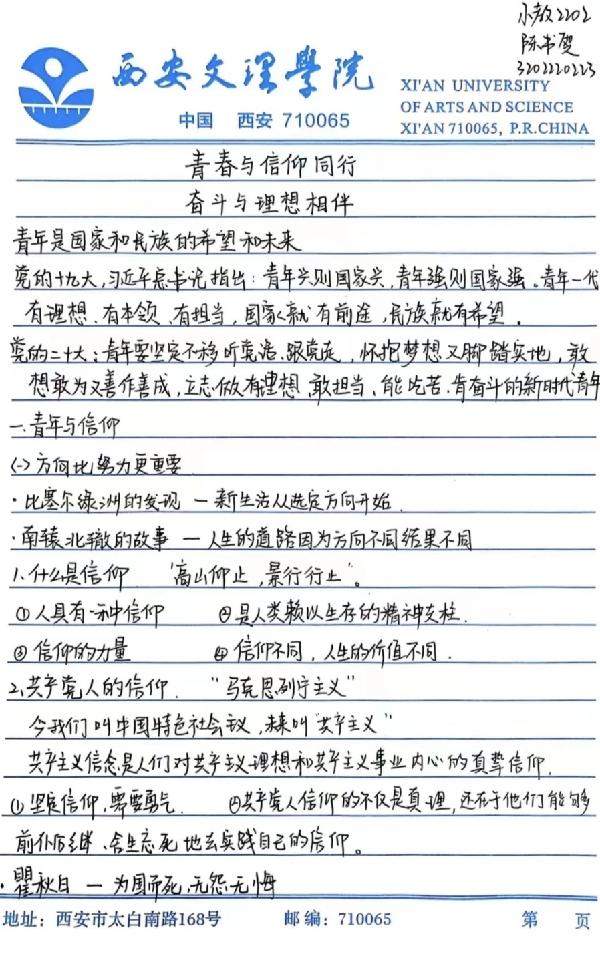 小教2202
陈书贺
3202220223
西安文理学院
中国 西安 710065
XI'AN UNIVERSITY
OF ARTS AND SCIENCE
XI'AN 710065, P.R.CHINA
青春与信仰同行
奋斗与理想相伴
青年是国家和民族的希望和未来
党的十九大,习近平总书记指出:青年兴则国家兴,青年强则国家强。青年一代
有理想、有本领、有担当,国家就有前途,民族就有希望。
党的二十大:青年要坚定不移听党话、跟党走,怀抱梦想又脚踏实地,敢
想敢为又善作善成,立志做有理想、敢担当、能吃苦、肯奋斗的新时代青年
一.青年与信仰
(一)方向比努力更重要
·比塞尔绿洲的发现 — 新生活从选定方向开始.
·南辕北辙的故事 — 人生的道路因为方向不同结果不同
1.什么是信仰 “高山仰止,景行行止”。
①人具有一种信仰 ②是人类赖以生存的精神支柱.
③信仰的力量 ④信仰不同,人生的价值不同.
2.共产党人的信仰. “马克思列宁主义”
今我们叫中国特色社会主义,未来叫“共产主义”
共产主义信念是人们对共产主义理想和共产主义事业内心的真挚信仰.
①坚定信仰,需要勇气. ②共产党人信仰的不仅是真理,还在于他们能够
前仆后继、舍生忘死地去实践自己的信仰。
·瞿秋白 — 为国而死,无怨无悔
地址:西安市太白南路168号 邮编:710065 第 页